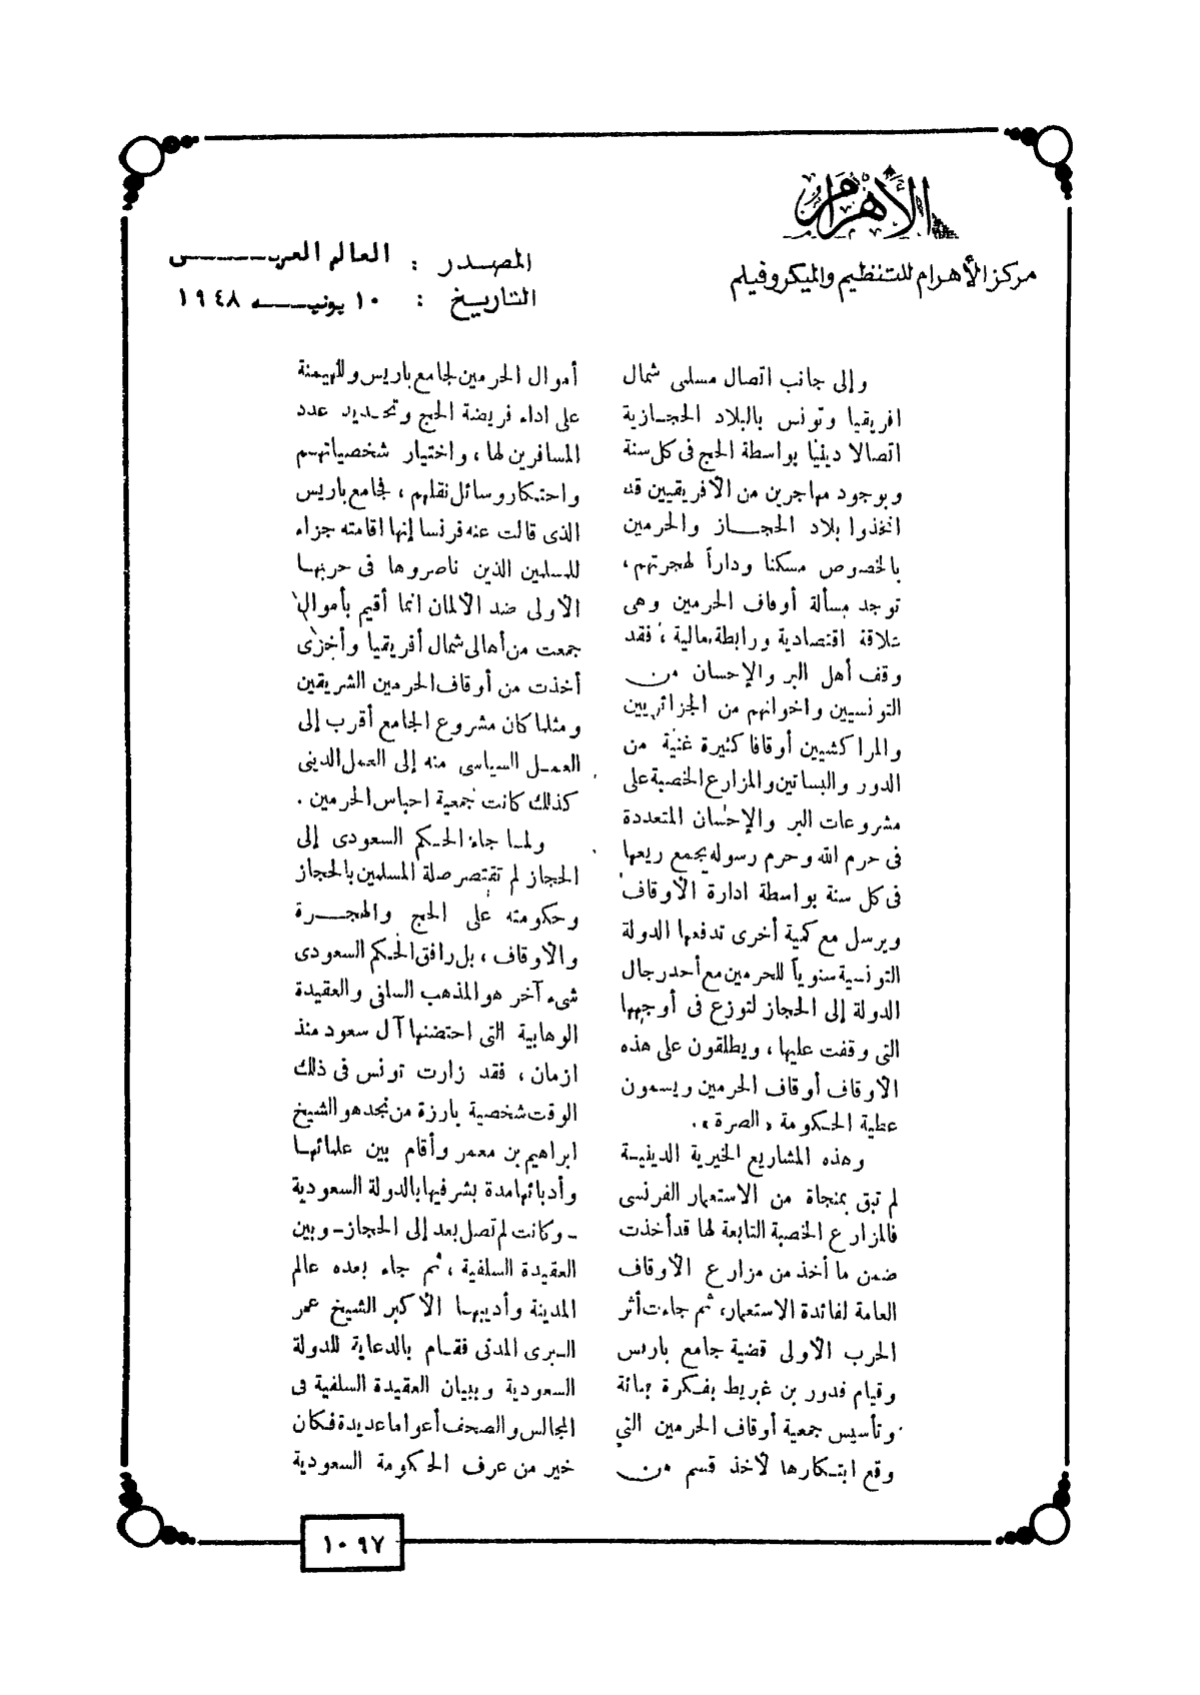 الأهرام
مركز الأهرام للتنظيم والميكروفيلم
المصدر : العالم العربى
التاريخ : ١٠ يونيه ١٩٤٨
وإلى جانب اتصال مسلمى شمال
افريقيا وتونس بالبلاد الحجازية
اتصالا دينيا بواسطة الحج فى كل سنة
وبوجود مهاجرين من الأفريقيين قد
اتخذوا بلاد الحجاز والحرمين
بالخصوص مسكنا وداراً لهجرتهم ،
توجد مسألة أوقاف الحرمين وهى
علاقة اقتصادية ورابطة مالية ، فقد
وقف أهل البر والإحسان من
التونسيين واخوانهم من الجزائريين
والمراكشيين أوقافا كثيرة غنية من
الدور والبساتين والمزارع الخصبة على
مشروعات البر والإحسان المتعددة
فى حرم الله وحرم رسوله يجمع ريعها
فى كل سنة بواسطة ادارة الأوقاف
ويرسل مع كمية أخرى تدفعها الدولة
التونسية سنوياً للحرمين مع أحد رجال
الدولة إلى الحجاز لتوزع فى أوجهها
التى وقفت عليها ، ويطلقون على هذه
الأوقاف أوقاف الحرمين ويسمون
عطية الحكومة «الصرة» .
وهذه المشاريع الخيرية الدينية
لم تبق بمنجاة من الاستعمار الفرنسى
فالمزارع الخصبة التابعة لها قد أخذت
ضمن ما أخذ من مزارع الأوقاف
العامة لفائدة الاستعمار، ثم جاءت أثر
الحرب الأولى قضية جامع باريس
وقيام قدور بن غبريط بفكرة بنائه
وتأسيس جمعية أوقاف الحرمين التى
وقع ابتكارها لأخذ قسم من
أموال الحرمين لجامع باريس وللهيمنة
على اداء فريضة الحج وتحديد عدد
المسافرين لها ، واختيار شخصياتهم
واحتكار وسائل نقلهم ، فجامع باريس
الذى قالت عنه فرنسا إنها اقامته جزاء
للمسلمين الذين ناصروها فى حربها
الأولى ضد الألمان انما أقيم بأموال
جمعت من أهالى شمال أفريقيا وأخرى
أخذت من أوقاف الحرمين الشريفين
ومثلما كان مشروع الجامع أقرب إلى
العمل السياسى منه إلى العمل الدينى
كذلك كانت جمعية احباس الحرمين .
ولما جاء الحكم السعودى إلى
الحجاز لم تقتصر صلة المسلمين بالحجاز
وحكومته على الحج والهجرة
والأوقاف ، بل رافق الحكم السعودى
شىء آخر هو المذهب السلفى والعقيدة
الوهابية التى احتضنها آل سعود منذ
ازمان ، فقد زارت تونس فى ذلك
الوقت شخصية بارزة من نجد هو الشيخ
ابراهيم بن معمر وأقام بين علمائها
وأدبائها مدة بشر فيها بالدولة السعودية
- وكانت لم تصل بعد إلى الحجاز - وبين
العقيدة السلفية ، ثم جاء بعده عالم
المدينة وأديبها الأكبر الشيخ عمر
البرى المدنى فقام بالدعاية للدولة
السعودية وببيان العقيدة السلفية فى
المجالس والصحف أعواما عديدة فكان
خير من عرف الحكومة السعودية
١٠٩٧